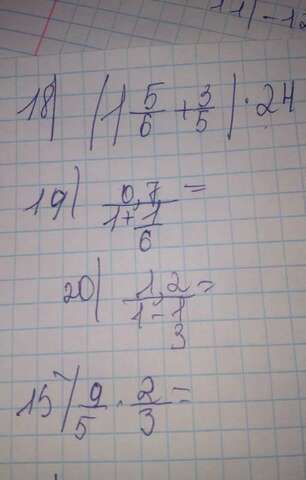 18) (1 5/6 + 3/5) · 24
19) 0,7/(1+1/6) =
20) 1,2/(1-1/3) =
15) 9/5 · 2/3 =